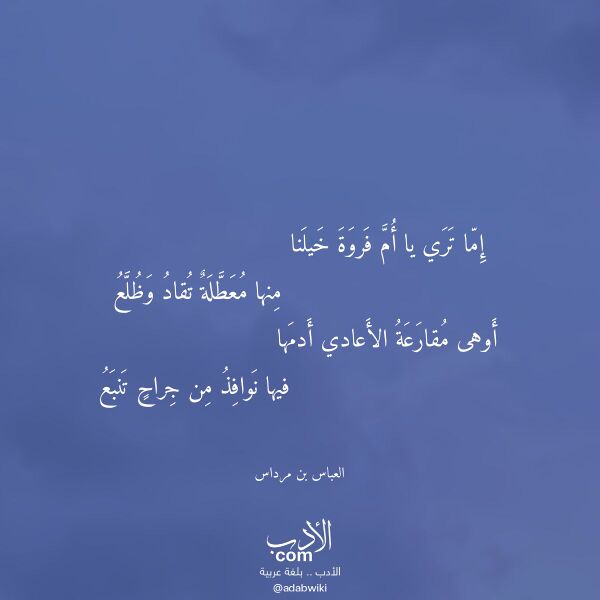 إِمّا تَرَي يا أُمَّ فَروَةَ خَيلَنا
مِنها مُعَطَّلَةٌ تُقادُ وَظُلَّعُ
أَوهى مُقارَعَةُ الأَعادي أَدمَها
فيها نَوافِذُ مِن جِراحٍ تَنبَعُ
العباس بن مرداس
الأدب
com
الأدب .. بلغة عربية
@adabwiki